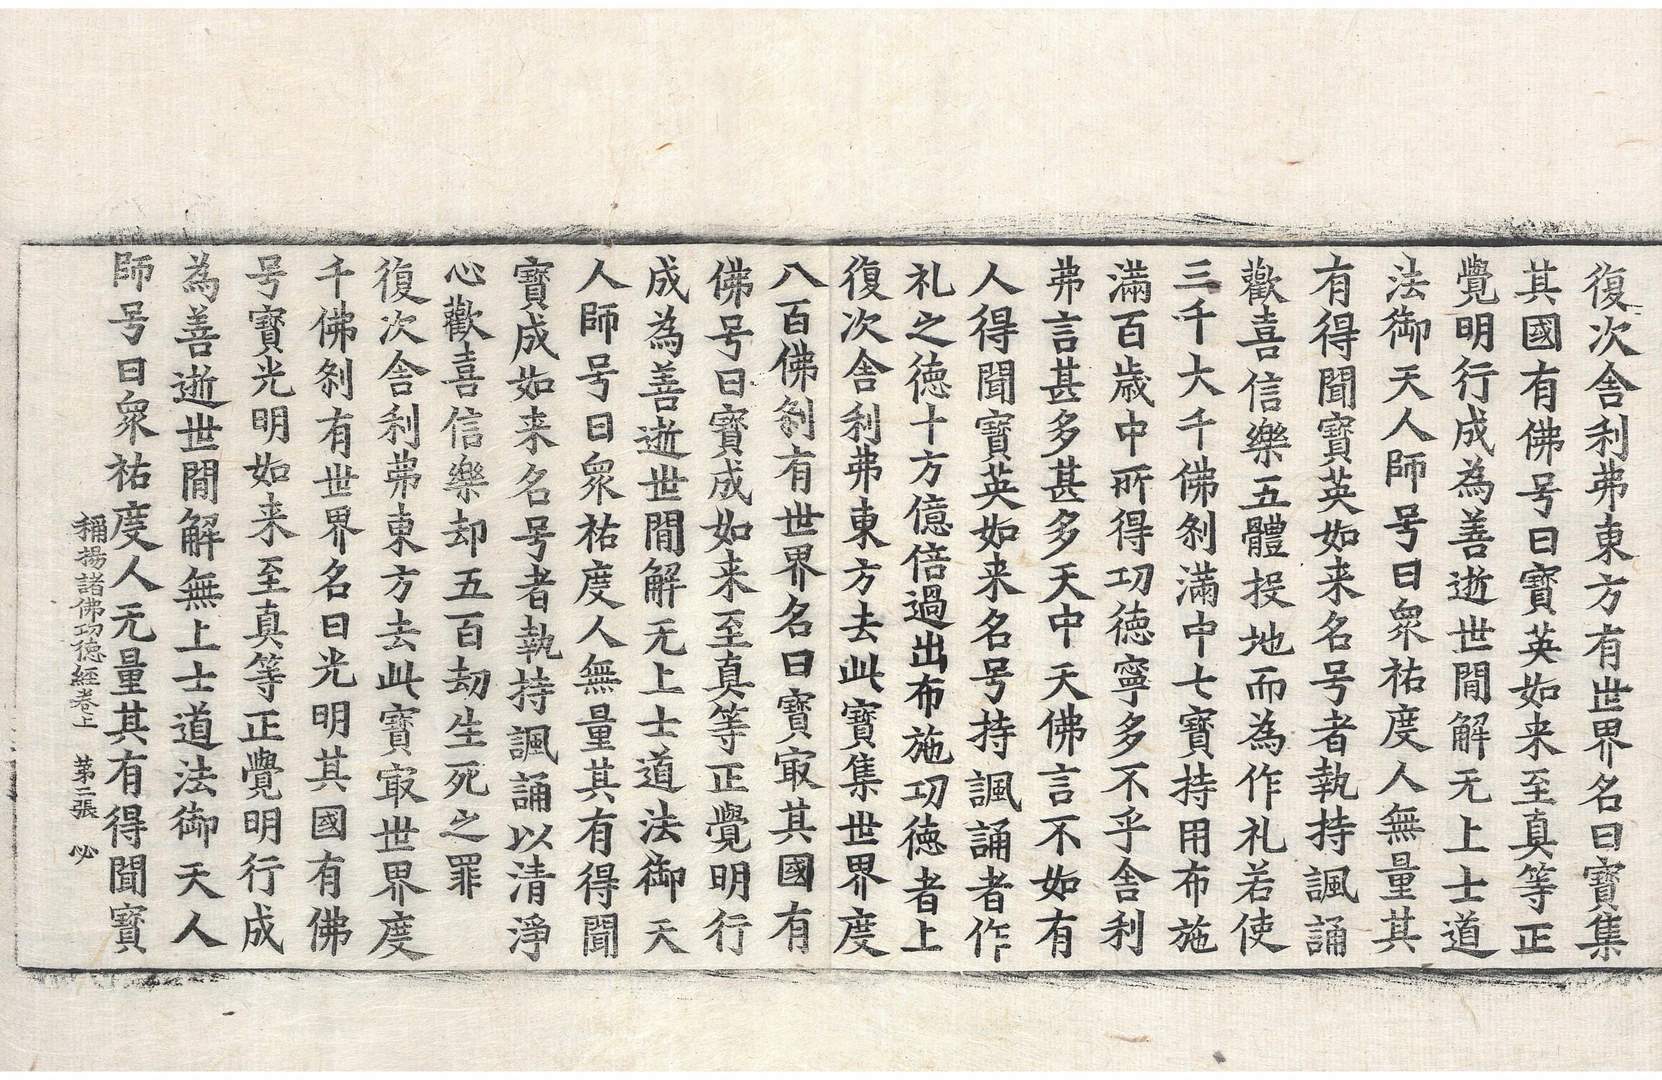 復次舍利弗東方有世界名曰寶集
其國有佛号曰寶英如来至真等正
覺明行成為善逝世間解无上士道
法御天人師号曰衆祐度人無量其
有得聞寶英如来名号者執持諷誦
歡喜信樂五體投地而為作礼若使
三千大千佛刹滿中七寶持用布施
滿百歲中所得功德寧多不乎舍利
弗言甚多甚多天中天佛言不如有
人得聞寶英如来名号持諷誦者作
礼之德十方億倍過出布施功德者上
復次舍利弗東方去此寶集世界度
八百佛刹有世界名曰寶㝡其國有
佛号曰寶成如来至真等正覺明行
成為善逝世間解无上士道法御天
人師号曰衆祐度人無量其有得聞
寶成如来名号者執持諷誦以清淨
心歡喜信樂却五百劫生死之罪
復次舍利弗東方去此寶㝡世界度
千佛刹有世界名曰光明其國有佛
号寶光明如来至真等正覺明行成
為善逝世間解無上士道法御天人
師号曰衆祐度人无量其有得聞寶
稱揚諸佛功德經卷上 第二張 必